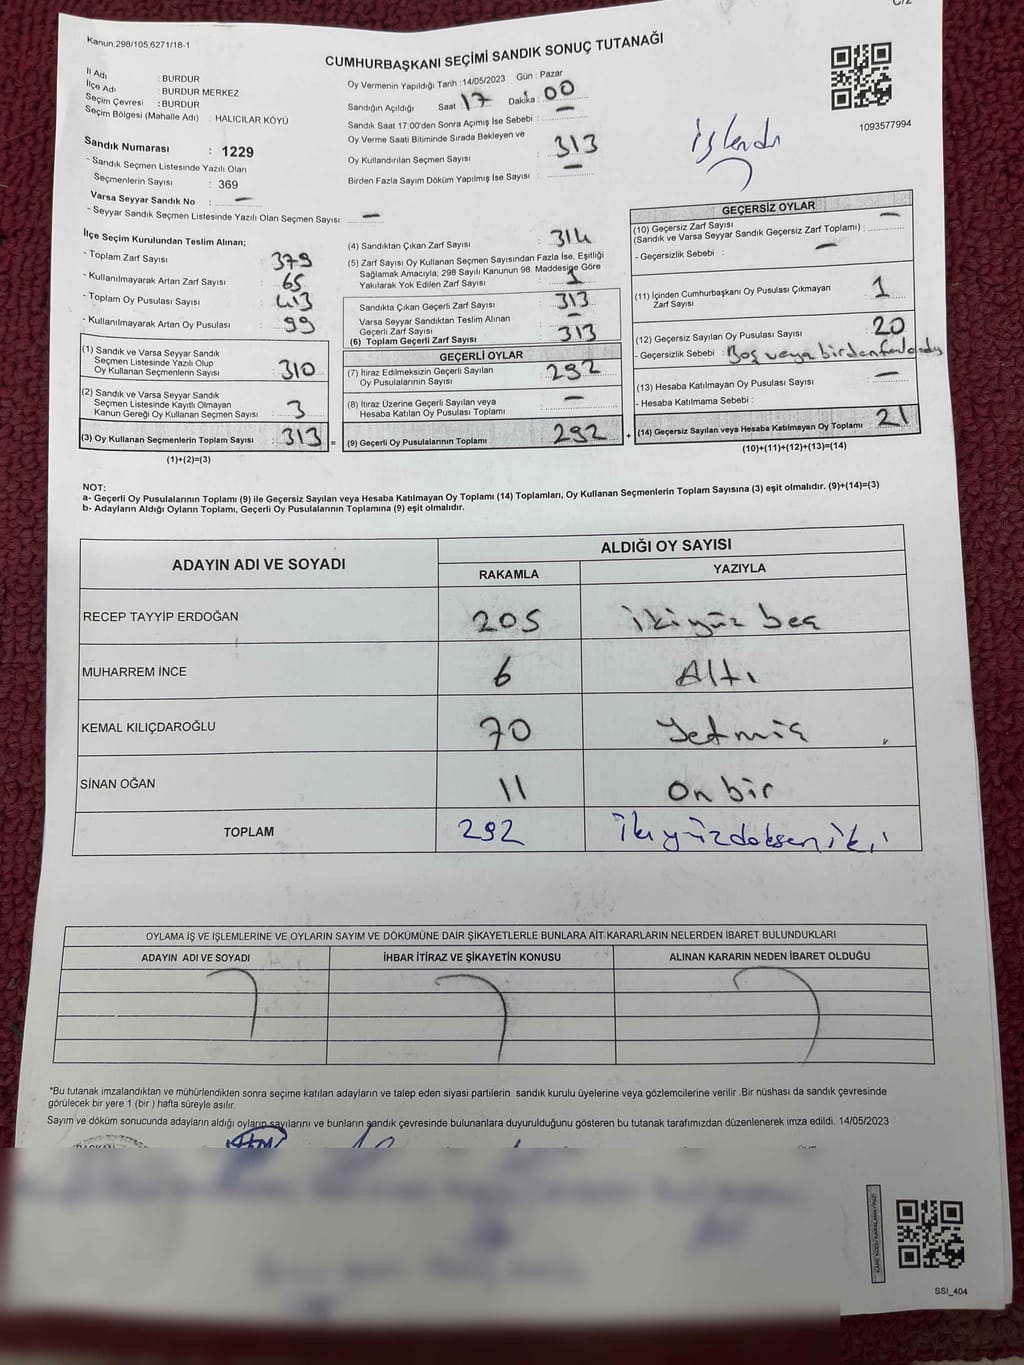 C/2
Kanun:298/105;6271/18-1
CUMHURBAŞKANI SEÇİMİ SANDIK SONUÇ TUTANAĞI
İl Adı : BURDUR
İlçe Adı : BURDUR MERKEZ
Seçim Çevresi : BURDUR
Seçim Bölgesi (Mahalle Adı) : HALICILAR KÖYÜ
Sandık Numarası : 1229
- Sandık Seçmen Listesinde Yazılı Olan
Seçmenlerin Sayısı : 369
Varsa Seyyar Sandık No : —
- Seyyar Sandık Seçmen Listesinde Yazılı Olan Seçmen Sayısı: —
Oy Vermenin Yapıldığı Tarih : 14/05/2023 Gün : Pazar
Sandığın Açıldığı Saat 17 Dakika : 00
Sandık Saat 17:00'den Sonra Açımış İse Sebebi : —
Oy Verme Saati Bitiminde Sırada Bekleyen ve
Oy Kullandırılan Seçmen Sayısı : 313
Birden Fazla Sayım Döküm Yapılmış İse Sayısı : —
1093577994
işlendi
İlçe Seçim Kurulundan Teslim Alınan;
- Toplam Zarf Sayısı : 379
- Kullanılmayarak Artan Zarf Sayısı : 65
- Toplam Oy Pusulası Sayısı : 413
- Kullanılmayarak Artan Oy Pusulası : 99
(1) Sandık ve Varsa Seyyar Sandık
Seçmen Listesinde Yazılı Olup
Oy Kullanan Seçmenlerin Sayısı : 310
(2) Sandık ve Varsa Seyyar Sandık
Seçmen Listesinde Kayıtlı Olmayan
Kanun Gereği Oy Kullanan Seçmen Sayısı : 3
(3) Oy Kullanan Seçmenlerin Toplam Sayısı : 313 =
(1)+(2)=(3)
(4) Sandıktan Çıkan Zarf Sayısı : 314
(5) Zarf Sayısı Oy Kullanan Seçmen Sayısından Fazla İse, Eşitliği
Sağlamak Amacıyla; 298 Sayılı Kanunun 98. Maddesine Göre
Yakılarak Yok Edilen Zarf Sayısı : 1
Sandıkta Çıkan Geçerli Zarf Sayısı : 313
Varsa Seyyar Sandıktan Teslim Alınan
Geçerli Zarf Sayısı : —
(6) Toplam Geçerli Zarf Sayısı : 313
GEÇERLİ OYLAR
(7) İtiraz Edilmeksizin Geçerli Sayılan
Oy Pusulalarının Sayısı : 292
(8) İtiraz Üzerine Geçerli Sayılan veya
Hesaba Katılan Oy Pusulası Toplamı : —
(9) Geçerli Oy Pusulalarının Toplamı : 292 +
GEÇERSİZ OYLAR
(10) Geçersiz Zarf Sayısı
(Sandık ve Varsa Seyyar Sandık Geçersiz Zarf Toplamı) : —
- Geçersizlik Sebebi : —
(11) İçinden Cumhurbaşkanı Oy Pusulası Çıkmayan
Zarf Sayısı : 1
(12) Geçersiz Sayılan Oy Pusulası Sayısı : 20
- Geçersizlik Sebebi : Boş veya birden
(13) Hesaba Katılmayan Oy Pusulası Sayısı : —
- Hesaba Katılmama Sebebi :
(14) Geçersiz Sayılan veya Hesaba Katılmayan Oy Toplamı : 21
(10)+(11)+(12)+(13)=(14)
NOT:
a- Geçerli Oy Pusulalarının Toplamı (9) ile Geçersiz Sayılan veya Hesaba Katılmayan Oy Toplamı (14) Toplamları, Oy Kullanan Seçmenlerin Toplam Sayısına (3) eşit olmalıdır. (9)+(14)=(3)
b- Adayların Aldığı Oyların Toplamı, Geçerli Oy Pusulalarının Toplamına (9) eşit olmalıdır.
ADAYIN ADI VE SOYADI ALDIĞI OY SAYISI
RAKAMLA YAZIYLA
RECEP TAYYİP ERDOĞAN 205 ikiyüz beş
MUHARREM İNCE 6 Altı
KEMAL KILIÇDAROĞLU 70 Yetmiş
SİNAN OĞAN 11 On bir
TOPLAM 292 ikiyüzdoksaniki
OYLAMA İŞ VE İŞLEMLERİNE VE OYLARIN SAYIM VE DÖKÜMÜNE DAİR ŞİKAYETLERLE BUNLARA AİT KARARLARIN NELERDEN İBARET BULUNDUKLARI
ADAYIN ADI VE SOYADI İHBAR İTİRAZ VE ŞİKAYETİN KONUSU ALINAN KARARIN NEDEN İBARET OLDUĞU
*Bu tutanak imzalandıktan ve mühürlendikten sonra seçime katılan adayların ve talep eden siyasi partilerin sandık kurulu üyelerine veya gözlemcilerine verilir .Bir nüshası da sandık çevresinde
görülecek bir yere 1 (bir ) hafta süreyle asılır.
Sayım ve döküm sonucunda adayların aldığı oyların sayılarını ve bunların sandık çevresinde bulunanlara duyurulduğunu gösteren bu tutanak tarafımızdan düzenlenerek imza edildi. 14/05/2023
SSI_404